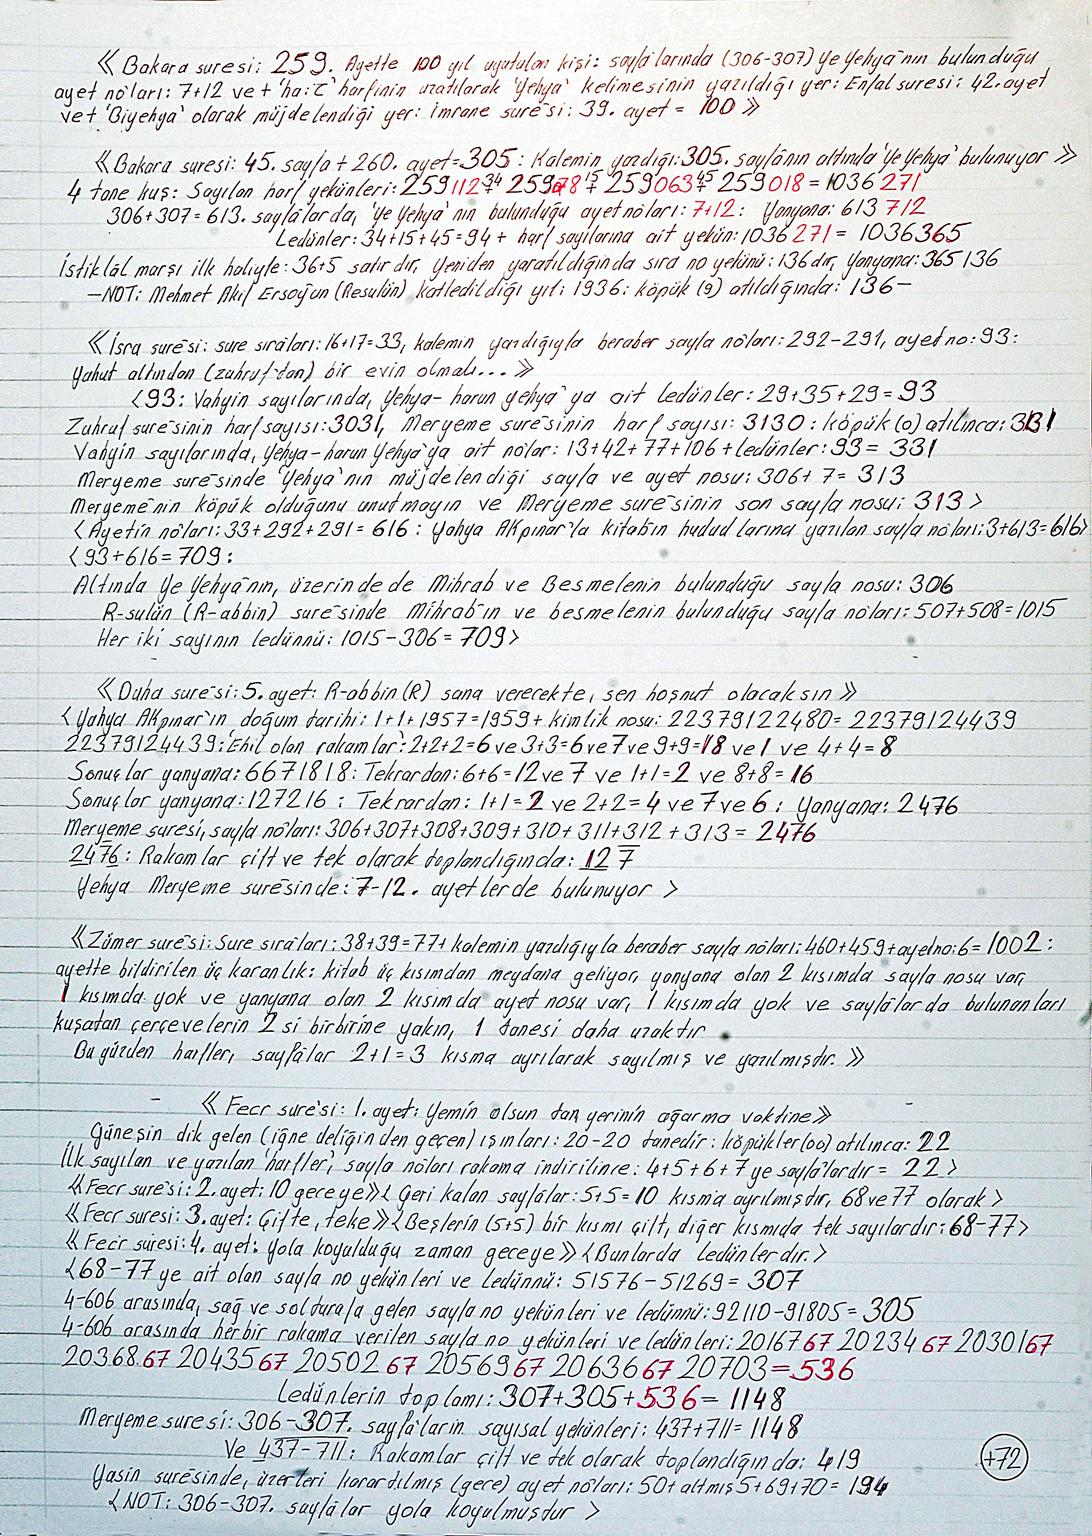 《 Bakara suresi: 259. Ayette 100 yıl uyutulan kişi: sayfa'larında (306-307) Ye Yehya'nın bulunduğu
ayet no'ları: 7+12 ve + 'ha: ح' harfinin uzatılarak 'Yehya' kelimesinin yazıldığı yer: Enfal suresi: 42. ayet
ve + 'Biyehya' olarak müjdelendiği yer: İmrane sure'si: 39. ayet = 100 》
《 Bakara suresi: 45. sayfa + 260. ayet = 305: Kalemin yazdığı: 305. sayfa'nın altında 'Ye Yehya' bulunuyor 》
4 tane kuş: Sayılan harf yekünleri: 259112 34 259078 15 259063 45 259018 = 1036271
306+307=613. sayfa'larda, 'Ye Yehya' nın bulunduğu ayet no'ları: 7+12: Yanyana: 613 712
Ledünler: 34+15+45=94 + harf sayılarına ait yekün: 1036271 = 1036365
İstiklal marşı ilk haliyle: 36+5 satırdır, yeniden yaratıldığında sıra no yekünü: 136 dır, Yanyana: 365136
— NOT: Mehmet Akif Ersoy'un (Resulün) katledildiği yıl: 1936: köpük (9) atıldığında: 136 —
《 İsra sure'si: sure sıra'ları: 16+17=33, kalemin yazdığıyla beraber sayfa no'ları: 292-291, ayet no: 93:
Yahut altından (zuhruf'tan) bir evin olmalı... 》
〈 93: Vahyin sayılarında, Yehya-harun yehya'ya ait ledünler: 29+35+29=93
Zuhruf sure'sinin harf sayısı: 3031, Meryeme sure'sinin harf sayısı: 3130: köpük (0) atılınca: 331
Vahyin sayılarında, Yehya-harun Yehya'ya ait no'lar: 13+42+77+106+ledünler: 93 = 331
Meryeme sure'sinde 'Yehya'nın müjdelendiği sayfa ve ayet nosu: 306+7=313
Meryeme'nin köpük olduğunu unutmayın ve Meryeme sure'sinin son sayfa nosu: 313 〉
〈 Ayetin no'ları: 33+292+291=616: Yahya AKpınar'la kitabın hududlarına yazılan sayfa no'ları: 3+613=616 〉
〈 93+616=709:
Altında Ye Yehya'nın, üzerinde de Mihrab ve Besmelenin bulunduğu sayfa nosu: 306
R-sulün (R-abbin) sure'sinde Mihrab'ın ve besmelenin bulunduğu sayfa no'ları: 507+508=1015
Her iki sayının ledünnü: 1015-306=709 〉
《 Duha sure'si: 5. ayet: R-abbin (R) sana verecekte, sen hoşnut olacaksın 》
〈 Yahya AKpınar'ın doğum tarihi: 1+1+1957=1959 + kimlik nosu: 22379122480 = 22379124439
22379124439: Ehil olan rakamlar: 2+2+2=6 ve 3+3=6 ve 7 ve 9+9=18 ve 1 ve 4+4=8
Sonuçlar yanyana: 6671818: Tekrardan: 6+6=12 ve 7 ve 1+1=2 ve 8+8=16
Sonuçlar yanyana: 127216: Tekrardan: 1+1=2 ve 2+2=4 ve 7 ve 6: Yanyana: 2476
Meryeme suresi, sayfa no'ları: 306+307+308+309+310+311+312+313=2476
2476: Rakamlar çift ve tek olarak toplandığında: 127
Yehya Meryeme sure'sinde: 7-12. ayetlerde bulunuyor 〉
《 Zümer sure'si: Sure sıra'ları: 38+39=77 + kalemin yazdığıyla beraber sayfa no'ları: 460+459+ayet no: 6=1002:
ayette bildirilen üç karanlık: kitab üç kısımdan meydana geliyor, yanyana olan 2 kısımda sayfa nosu var,
1 kısımda yok ve yanyana olan 2 kısımda ayet nosu var, 1 kısımda yok ve sayfa'larda bulunanları
kuşatan çerçevelerin 2 si birbirine yakın, 1 tanesi daha uzaktır
Bu yüzden harfler, sayfa'lar 2+1=3 kısma ayrılarak sayılmış ve yazılmıştır. 》
《 Fecr sure'si: 1. ayet: Yemin olsun tan yerinin ağarma vaktine 》
Güneşin dik gelen (iğne deliğinden geçen) ışınları: 20-20 tanedir: köpükler (00) atılınca: 22
İlk sayılan ve yazılan 'harfler', sayfa no'ları rakama indirilince: 4+5+6+7 ye sayfa'lardır = 22 〉
《 Fecr sure'si: 2. ayet: 10 geceye 》〈 Geri kalan sayfa'lar: 5+5=10 kısma ayrılmıştır, 68 ve 77 olarak 〉
《 Fecr suresi: 3. ayet: Çifte, teke 》〈 Beşlerin (5+5) bir kısmı çift, diğer kısmıda tek sayılardır: 68-77 〉
《 Fecir suresi: 4. ayet: Yola koyulduğu zaman geceye 》〈 Bunlarda Ledünlerdir. 〉
〈 68-77 ye ait olan sayfa no yekünleri ve Ledünnü: 51576-51269=307
4-606 arasında, sağ ve sol tarafa gelen sayfa no yekünleri ve ledünnü: 92110-91805=305
4-606 arasında herbir rakama verilen sayfa no yekünleri ve ledünleri: 20167 67 20234 67 20301 67
20368 67 20435 67 20502 67 20569 67 20636 67 20703 = 536
Ledünlerin toplamı: 307+305+536=1148
Meryeme suresi: 306-307. sayfa'ların sayısal yekünleri: 437+711=1148
Ve 437-711: Rakamlar çift ve tek olarak toplandığında: 419
Yasin sure'sinde, üzerleri karartılmış (gece) ayet no'ları: 50+altmış5+69+70=194
〈 NOT: 306-307. sayfa'lar yola koyulmuştur 〉
+72